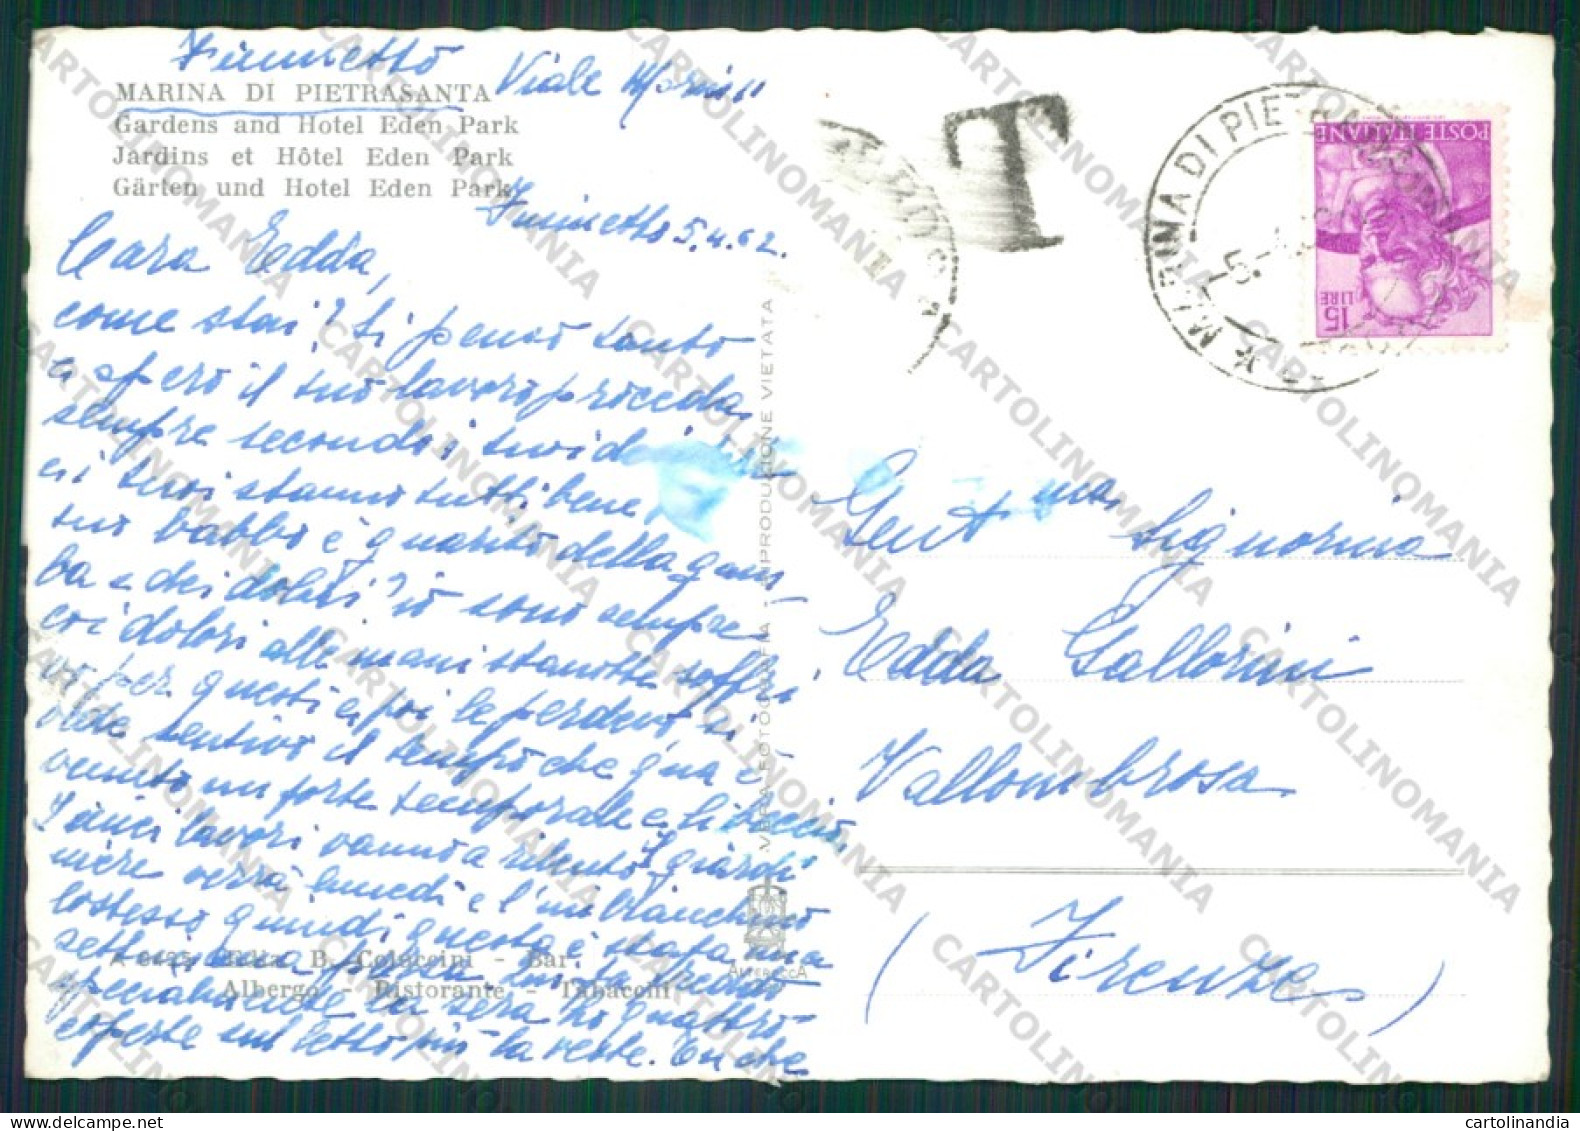 Fiumetto
Viale Morin 11
MARINA DI PIETRASANTA
Gardens and Hotel Eden Park
Jardins et Hôtel Eden Park
Gärten und Hotel Eden Park
Fiumetto 5.4.62.
Cara Edda,
come stai? ti penso tanto
e spero il tuo lavoro proceda
sempre secondo i tuoi
ei tuoi stanno tutti bene,
tuo babbo è guarito della gam
ba e dei dolori? io sono sempre
coi dolori alle mani stanotte soffri
vo per questi e poi le perdevo si
vede sentivo il tempo che qua è
venuto un forte temporale e libeccio,
I miei lavori vanno a rilento, I giardi
niere verrà lunedì e l'imbianchino
lostesso quindi questa è stata una
settimana persa, molto freddo
specialmente la sera ho quattro
coperte sul letto più la veste. Tu che
A 6425 Ditta B. Coluccini - Bar
Albergo - Ristorante - Tabacchi
VERA FOTOGRAFIA - RIPRODUZIONE VIETATA
ALTEROCCA
T
MARINA DI PIETRASANTA
-5.-4.
POSTE ITALIANE
15 LIRE
Gent ma Signorina
Edda Gallorini
Vallombrosa
(Firenze)
CARTOLINOMANIA
cartolinandia